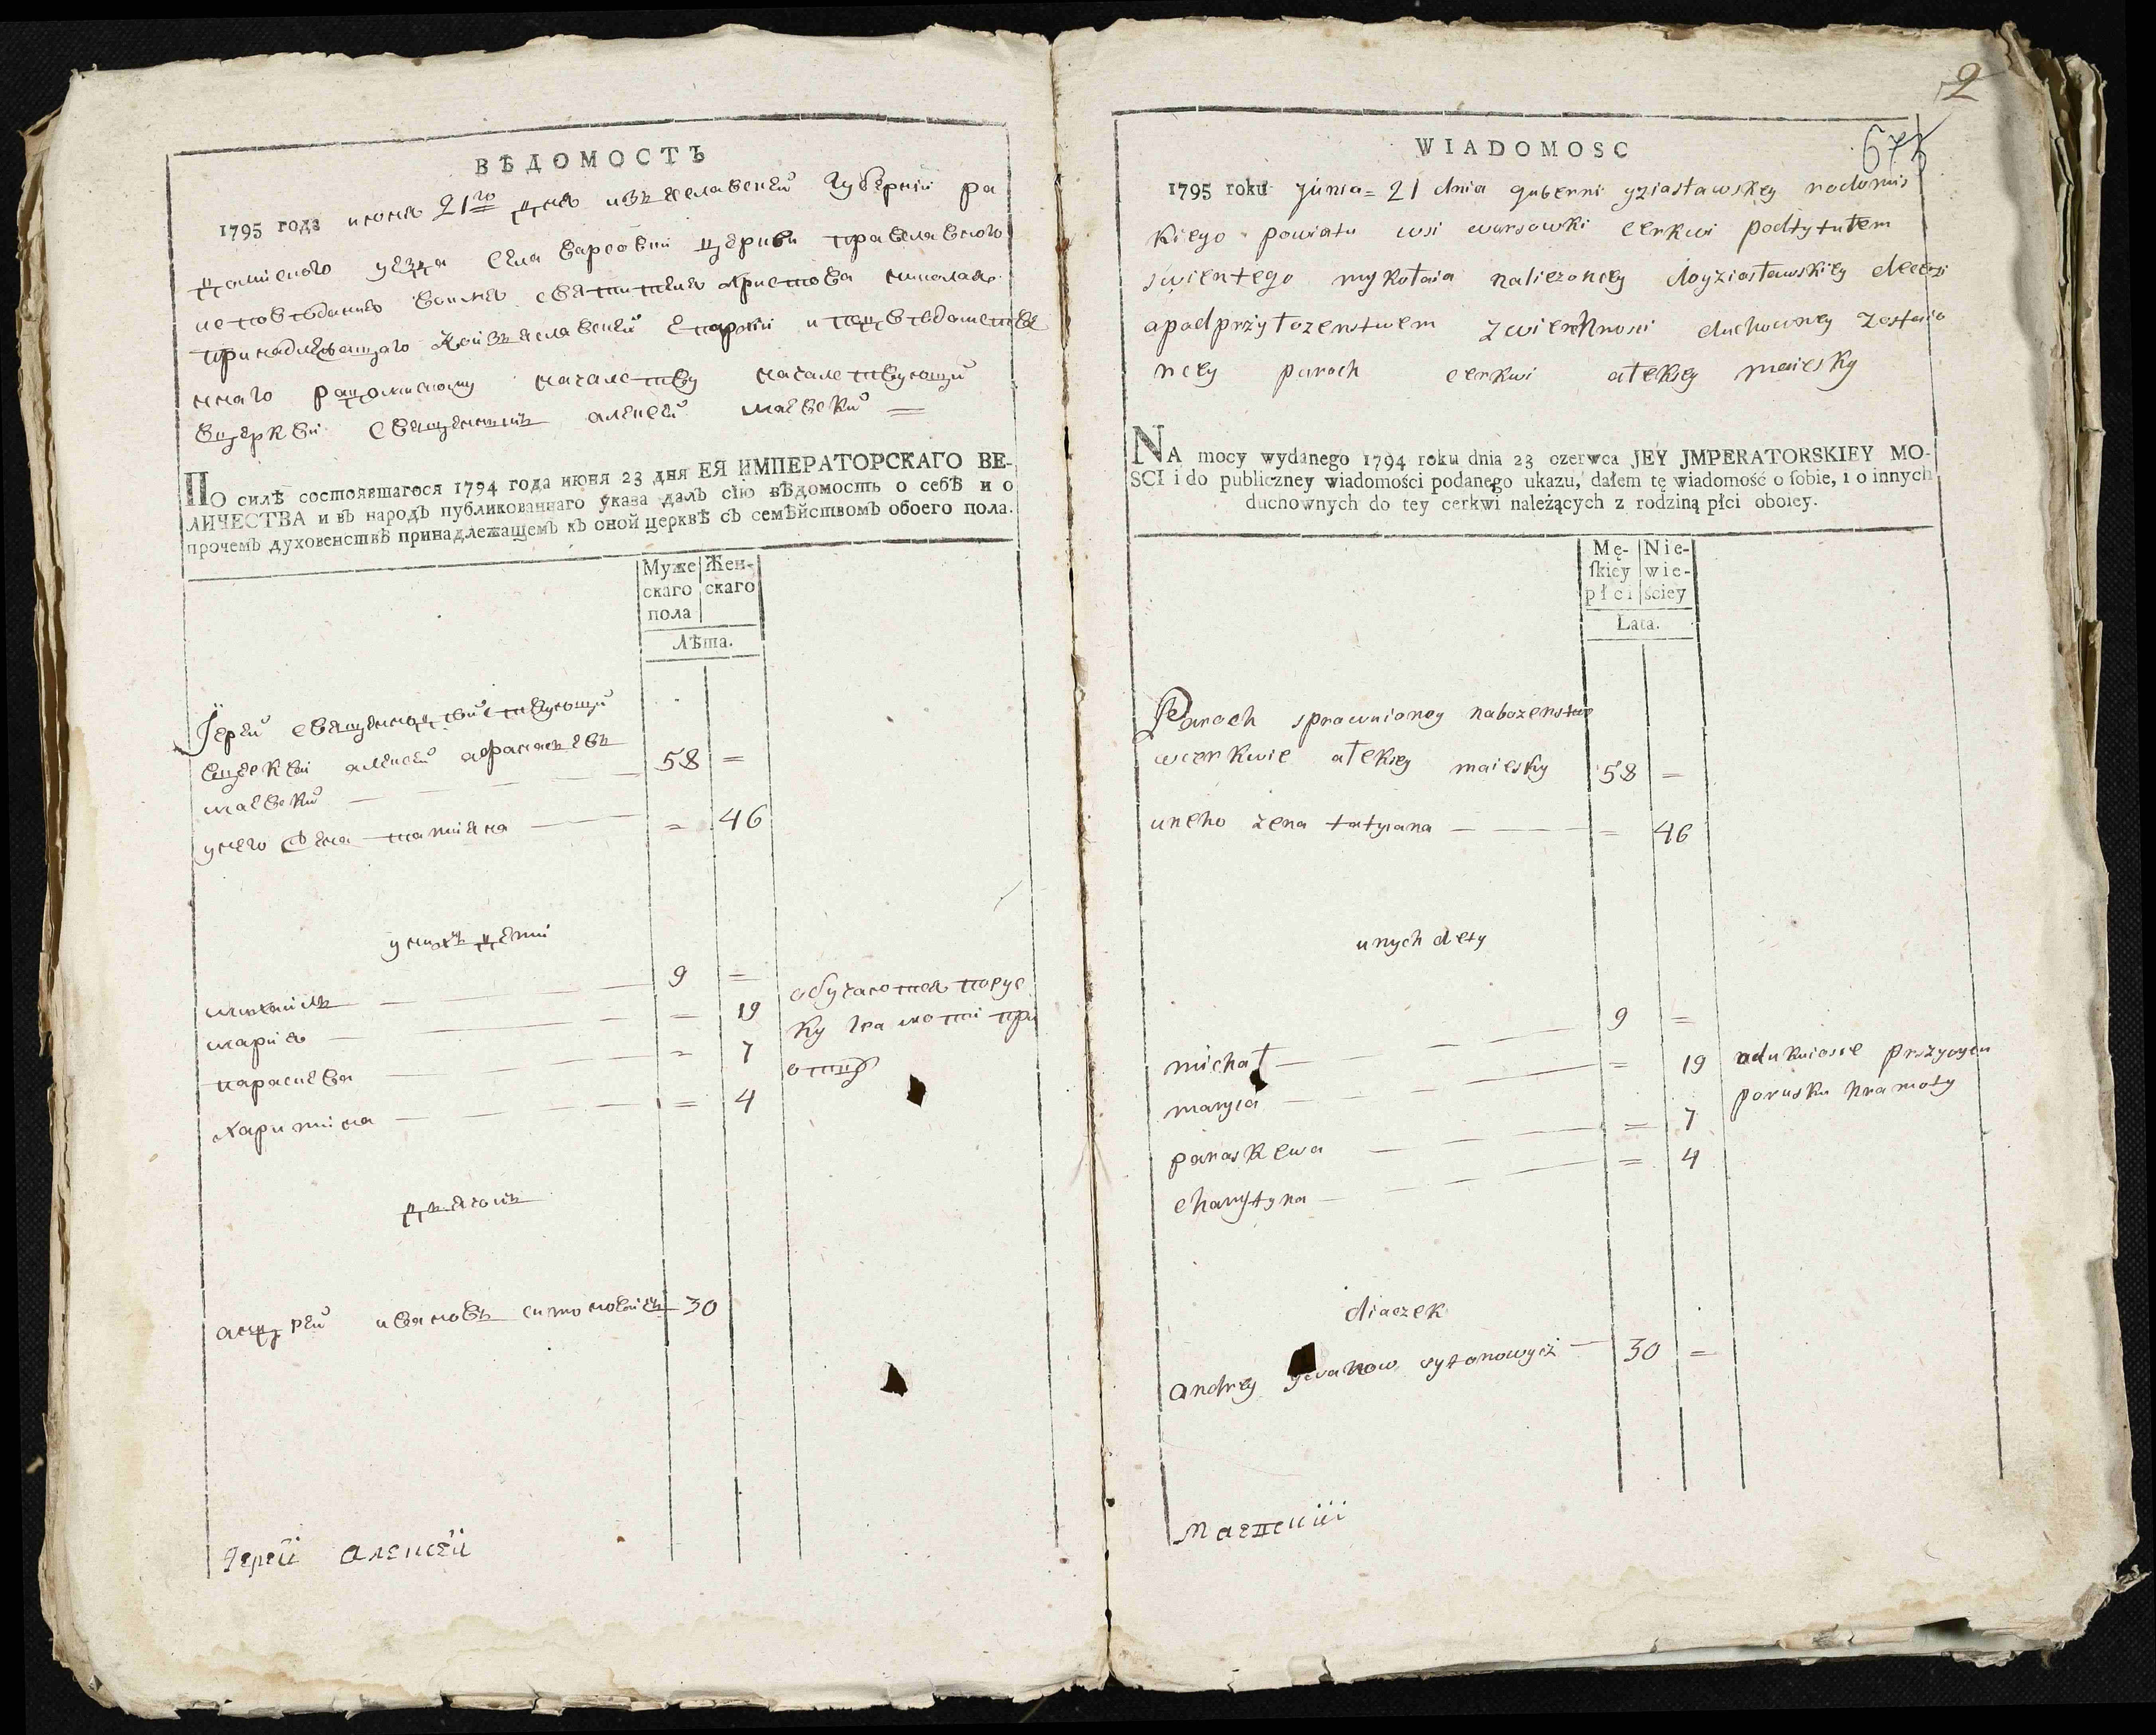 ВѢДОМОСТЬ
1795 года июня 21го дня изъяславской губернїи ра
домиского уезда села варсовки церкви православного
исповѣданиѧ воимѧ свѧтителѧ христова николаѧ
принадлежащаго коизъяславской епархїи ипедведомстве
нного радомискому началству началствующий
вцеркви священникъ алексей маевски =
ПО силѣ состоявшагося 1794 года июня 23 дня ЕЯ ИМПЕРАТОРСКАГО ВЕ-
ЛИЧЕСТВА и въ народъ публикованнаго указа далъ сїю вѣдомость о себѣ и о
прочемъ духовенствѣ принадлежащемъ къ оной церквѣ съ семѣйствомъ обоего пола.
Муже Жен-
скаго скаго
пола
Лѣта.
Їерей священнодѣйствующий
вцеркви алексей афанасьевъ
маевски — — — 58 =
унего жена татиѧна — — = 46
унихъ дети
михаилъ — — — 9 =
мариѧ — — — = 19 обучаютсѧ порус
параскева — — = 7 ку грамоти при
харитина — — = 4 отцу
дьячокъ
андрей ивановъ ситоновичъ 30
Їерей Алексей
2
675
WIADOMOSC
1795 roku junia = 21 dnia guberni yziasławskiey radomis
kiego powiatu wsi warsowki cerkwi podtytułem
swientego mykołaia naliezonciey doyziasławskiey decezi
apadprzyłozenstwem zwierhnosci duchowney zostaio
nciey paroch cerkwi ałekiey maiesky
NA mocy wydanego 1794 roku dnia 23 czerwca JEY JMPERATORSKIEY MO-
SCI i do publiczney wiadomości podanego ukazu, dałem tę wiadomość o sobie, i o innych
duchownych do tey cerkwi należących z rodziną płci oboiey.
Mę- Nie-
skiey wie-
płci ściey
Lata.
Paroch sprawnioncy nabozenstwo
wcerkwie ałekiey maiesky 58 =
uneho zena tatyiana — — = 46
unych dety
michał — — — 9 =
maryia — — — = 19 adukuiesie przyoycu
paraskewa — — = 7 porusku hramoty
charytyna — — = 4
diaczek
andrey ywanow sytonowycz — 30 =
маевский